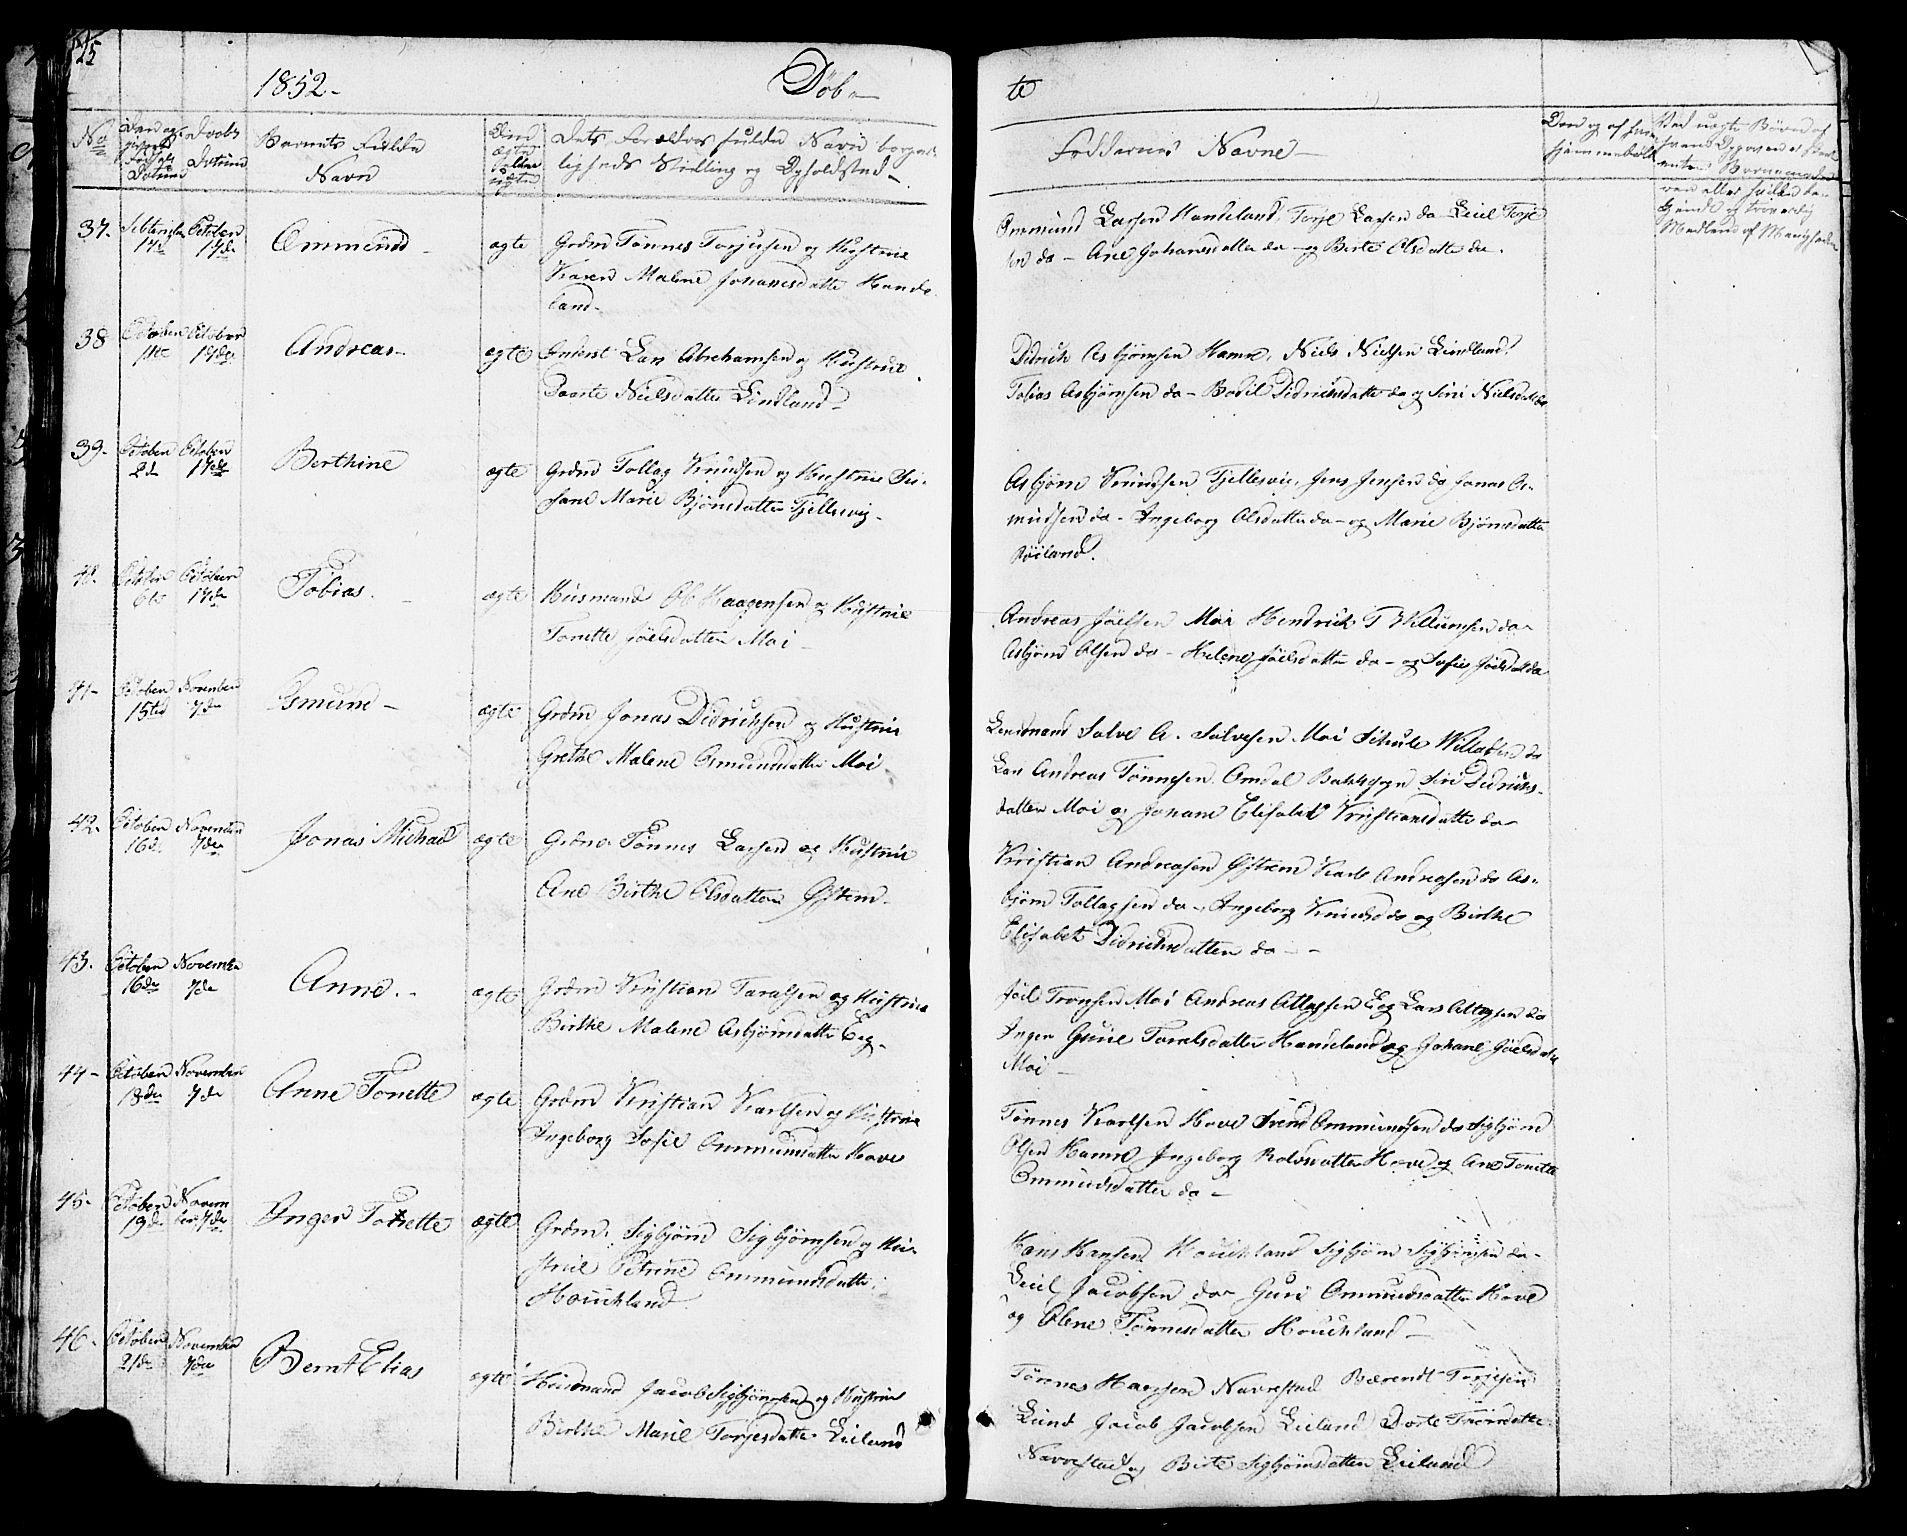 25
1852-
Døb-
te
No
Barnets Fulde
Navn
Dets Forældres fulde Navn borger-
ligheds Stilling og Opholdsted-
Faddernes Navne-
37.
Septembr October
17de 17de
Ommund-
ægte
Grdm Tønnes Torjusen og Hustrue
Karen Malene Johannesdatter Hande-
land-
Ommund Larsen Handeland, Torje Larsen do Eiel Torje
sen do- Ane Johannesdatter do-og Berte Olsdatter do.
38
October October
11te 17de
Andreas-
ægte
Inderst Lars Abrehamsen og Hustrue
Nielsdatter Lindland-
Didrich Asbjørnsen Hamre, Niels Nielsen Lindland
Tobias Asbjørnsen do- Bodil Didrichsdatter do og Siri Nielsdatter
39-
October October
2d 17de
Berthine
ægte
Grdm Tollag Knudsen og Hustrue
Marie Bjørnsdatter Fjellesvig-
Asbjørn Knudsen Fjellesvig, Jens Jensen do Jonas As-
mudsen do- Ingeborg Olsdatter do-og Marie Bjørnsdatter
Røiland.
40.
October October
6te 17de
Tobias.
ægte
Husmand Ole Haagensen og Hustrue
Tonette Joelsdatter Moi-
Andreas Joelsen Moi Hendrick T Willumsen do-
Asbjørn Olsen do- Helene Joelsdatter do- og Sofie Joelsd do
41-
October November
15ted 7de
Omund-
ægte
Grdm Jonas Didrichsen og Hustrue
Grethe Malene Omundsdatter Moi
Lensmand Salve A. Salvesen Moi do
Lars Andreas Tønnesen Omdal Bakkesogn Siri Didrichs-
datter Moi og Johane Elisabet Kristiansdatter do-
42.
October November
16de 7de
Jonas Michael
ægte
Grdm Tønnes Larsen og Hustrue
Ane Birthe Olsdatter Østrem-
Kristian Andreasen Østrem Karl Andreasen do As-
bjørn Tollagsen do-, Ingeborg Knudsd do og Birthe
Elisabet Didrichsdatter do--
43.
October November
16de 7de
Anne.-
ægte
Grdm Kristian Taralsen og Hustrue
Birthe Malene Asbjørnsdatter Eeg-
Joel Tronsen Moi Andreas Atlagsen Eeg Lars Atlagsen do
Inger Gurie Taralsdatter Handeland og Johane Joelsdatter
Moi-
44-
October November
18de 7de
Anne Tonette
ægte
Grdm Kristian Karlsen og Hustrue
Ingeborg Sofie Ommundsdatter Hove
Tønnes Karlsen Hove Ommundsen do Sigbjørn
Olsen Hamre Ingeborg Hove og Ane Tonette
Ommundsdatter do-
45-
October Novem
19de ber 7de
Inger Tonette
ægte
Grdm. Sigbjørn Sigbjørnsen og Hu-
strue Petrine Ommundsdatter
Houchland
Hans Hansen Houchland Sigbjørn Sigbjørnsen do-
Eiel Jacobsen do- Guri Ommundsdatter Hove
og Olene Tønnesdatter Houchland-
46-
October November
21de 7de
Bernt Elias
ægte
Husmand Jacob Sigbjørnsen og Hustrue
Birthe Marie Torjesdatter Eieland
Tønnes Hansen Navrestad Bærendt Torjesen
Lund Jacob Jacobsen Eieland, Dorte datter
Navrestad og Birte Sigbjørnsdatter Eieland